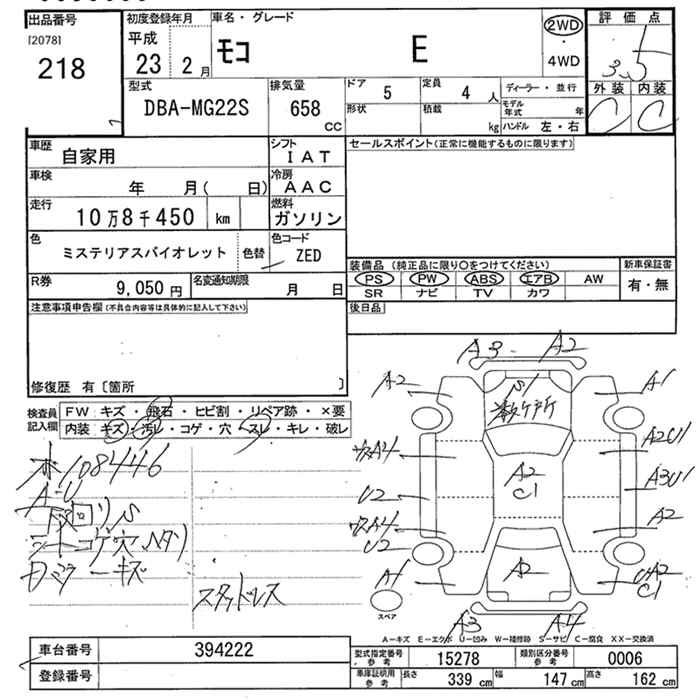 出品番号
[2078]
218
初度登録年月
平成
23 2 月
車名・グレード
モコ E
2WD
・
4WD
評価点
3.5
外装 内装
C C
型式
DBA-MG22S
排気量
658
CC
ドア 5
定員 4 人
形状
積載 kg
ディーラー・並行
モデル年式 年
ハンドル 左・右
車歴
自家用
シフト
IAT
車検
年 月( 日)
冷房
AAC
走行
10万8千450 km
燃料
ガソリン
色
ミステリアスバイオレット
色替
色コード
ZED
R券
9,050 円
名変通知期限
月 日
セールスポイント(正常に機能するものに限ります)
装備品 (純正品に限り○をつけてください)
PS PW ABS エアB AW
SR ナビ TV カワ
新車保証書
有・無
後日品
注意事項申告欄(不具合内容等は具体的に記入して下さい)
修復歴 有[箇所 ]
検査員
記入欄
FW: キズ・飛石・ヒビ割・リペア跡・×要
内装: キズ・汚レ・コゲ・穴・スレ・キレ・破レ
108446
A-U
シートコゲ穴
キズ
スタッドレス
A3 - A2
A2
A1
A4
A2U1
A2
C1
U2
A3U1
A4
A2
U2
A1
A2
UA2
C1
スペア
A3
A4
A-キズ E-エクボ U-凹み W-補修跡 S-サビ C-腐食 XX-交換済
車台番号
394222
登録番号
型式指定番号
参考
15278
類別区分番号
参考
0006
車庫証明用
参考
長さ 339 cm
幅 147 cm
高さ 162 cm